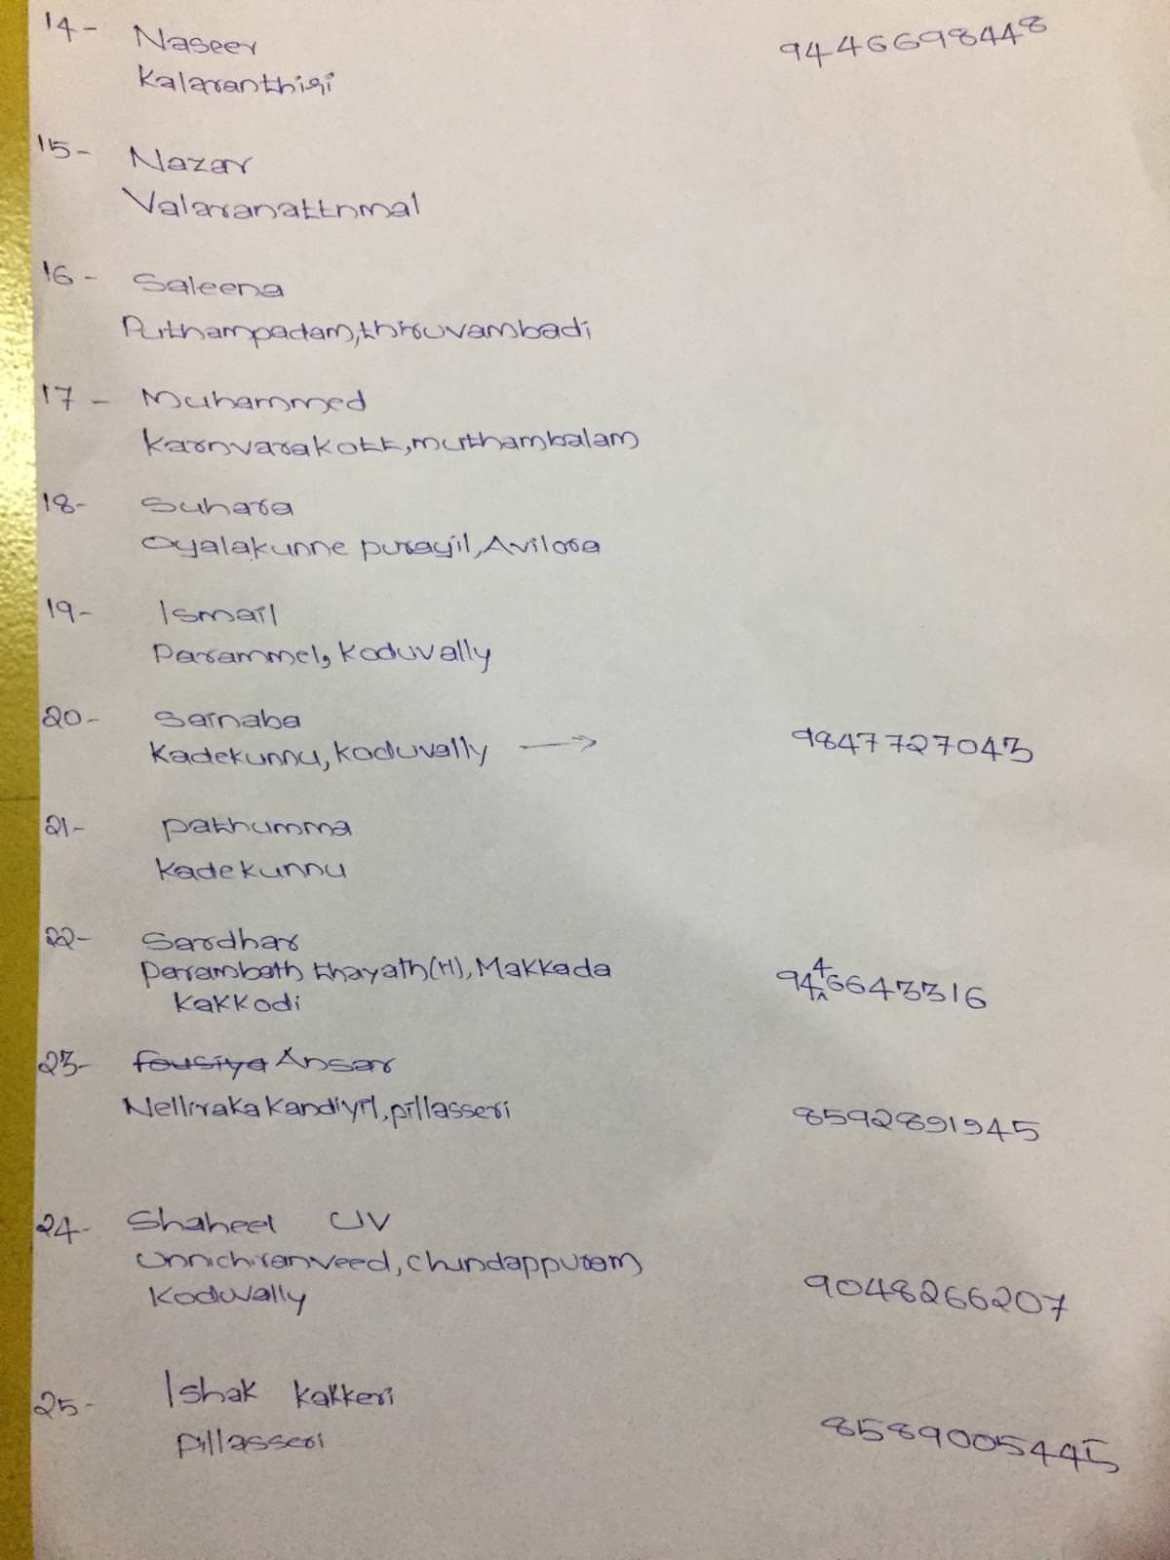 14- Naseer 9446698448
Kalaranthiri
15- Nazar
Valaranattnmal
16- Saleena
Puthampadam,thiruvambadi
17- Muhammed
Karnvarakott,muthambalam
18- Suhara
Oyalakunne purayil,Avilora
19- Ismail
Parammel, Koduvally
20- Sainaba
Kadekunnu,koduvally → 9847727043
21- pathumma
Kadekunnu
22- Sardhar
Parambath thayath(H),Makkada 9446643316
Kakkodi
23- fousiya Ansar
Nelliraka Kandiyil,pillasseri 8592891945
24- Shaheel UV
Unnichiranveed,Chundappuram
Koduvally 9048266207
25- Ishak Kakkeri
pillasseri 8589005445